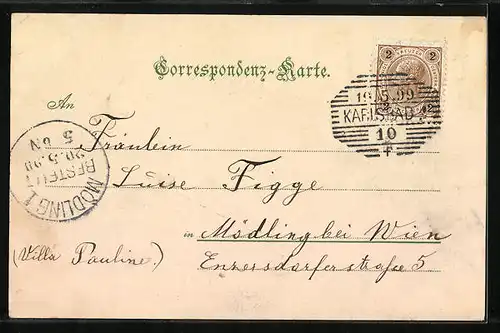 Correspondenz-Karte.
2 KREUZER 2
2 2
19.5.99
KARLSBAD
10
An
Fräulein
Luise Figge
in Mödling bei Wien
(Villa Pauline.)
Enzersdorferstraße 5
MÖDLING 1
BESTELLT
20.5.99
5 6N